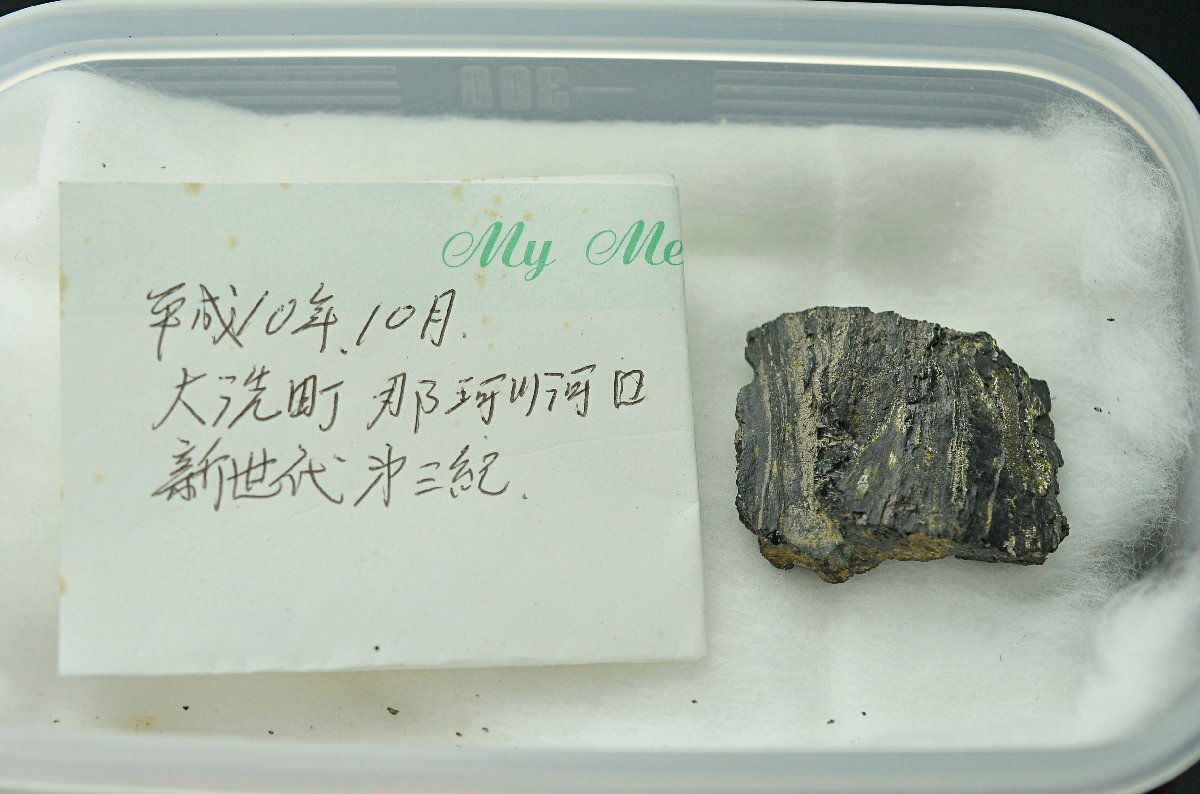 300
My Me
平成10年.10月.
大洗町 那珂川河口
新世代 第三紀.